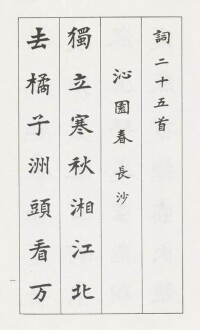 詞二十五首
沁園春 長沙
獨立寒秋湘江北
去橘子洲頭看万
一